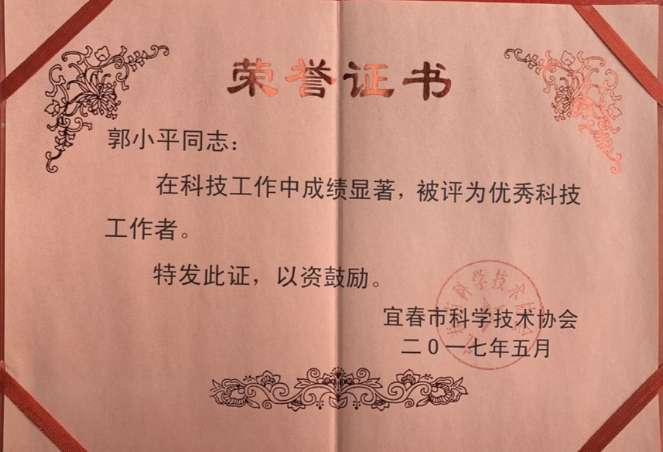 荣誉证书
郭小平同志：
在科技工作中成绩显著，被评为优秀科技
工作者。
特发此证，以资鼓励。
宜春市科学技术协会
二0一七年五月